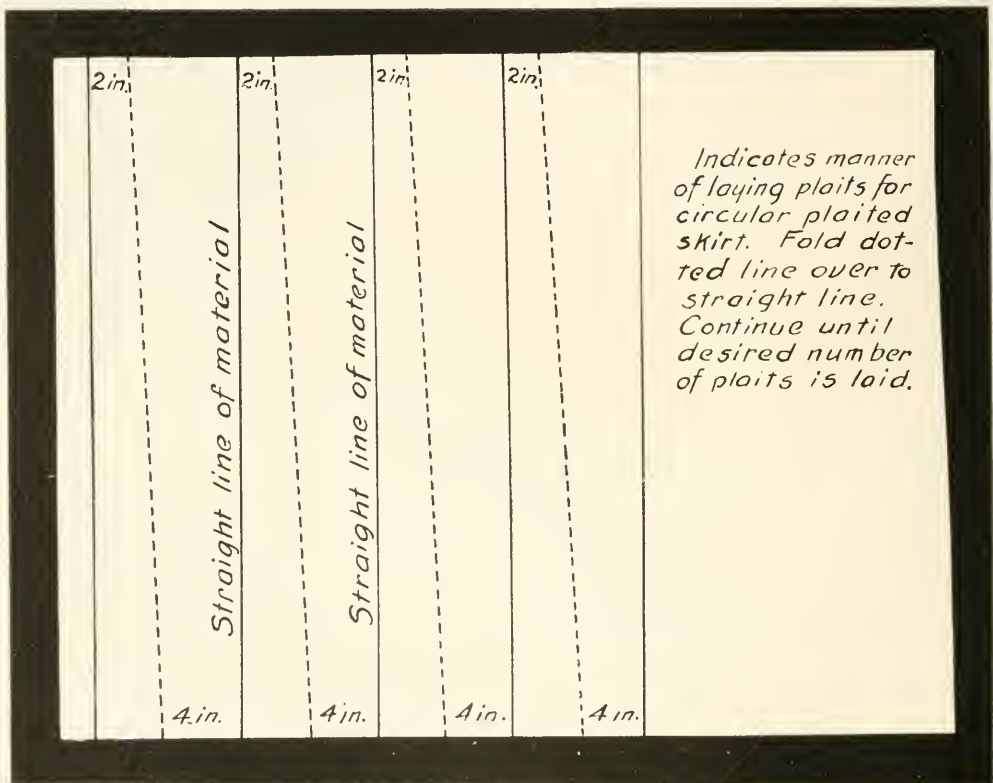 2in. 2in. 2in 2in.
Straight line of material
Straight line of material
Indicates manner
of laying plaits for
circular plaited
skirt. Fold dot-
ted line over to
straight line.
Continue until
desired number
of plaits is laid.
4 in. 4 in. 4 in. 4 in.